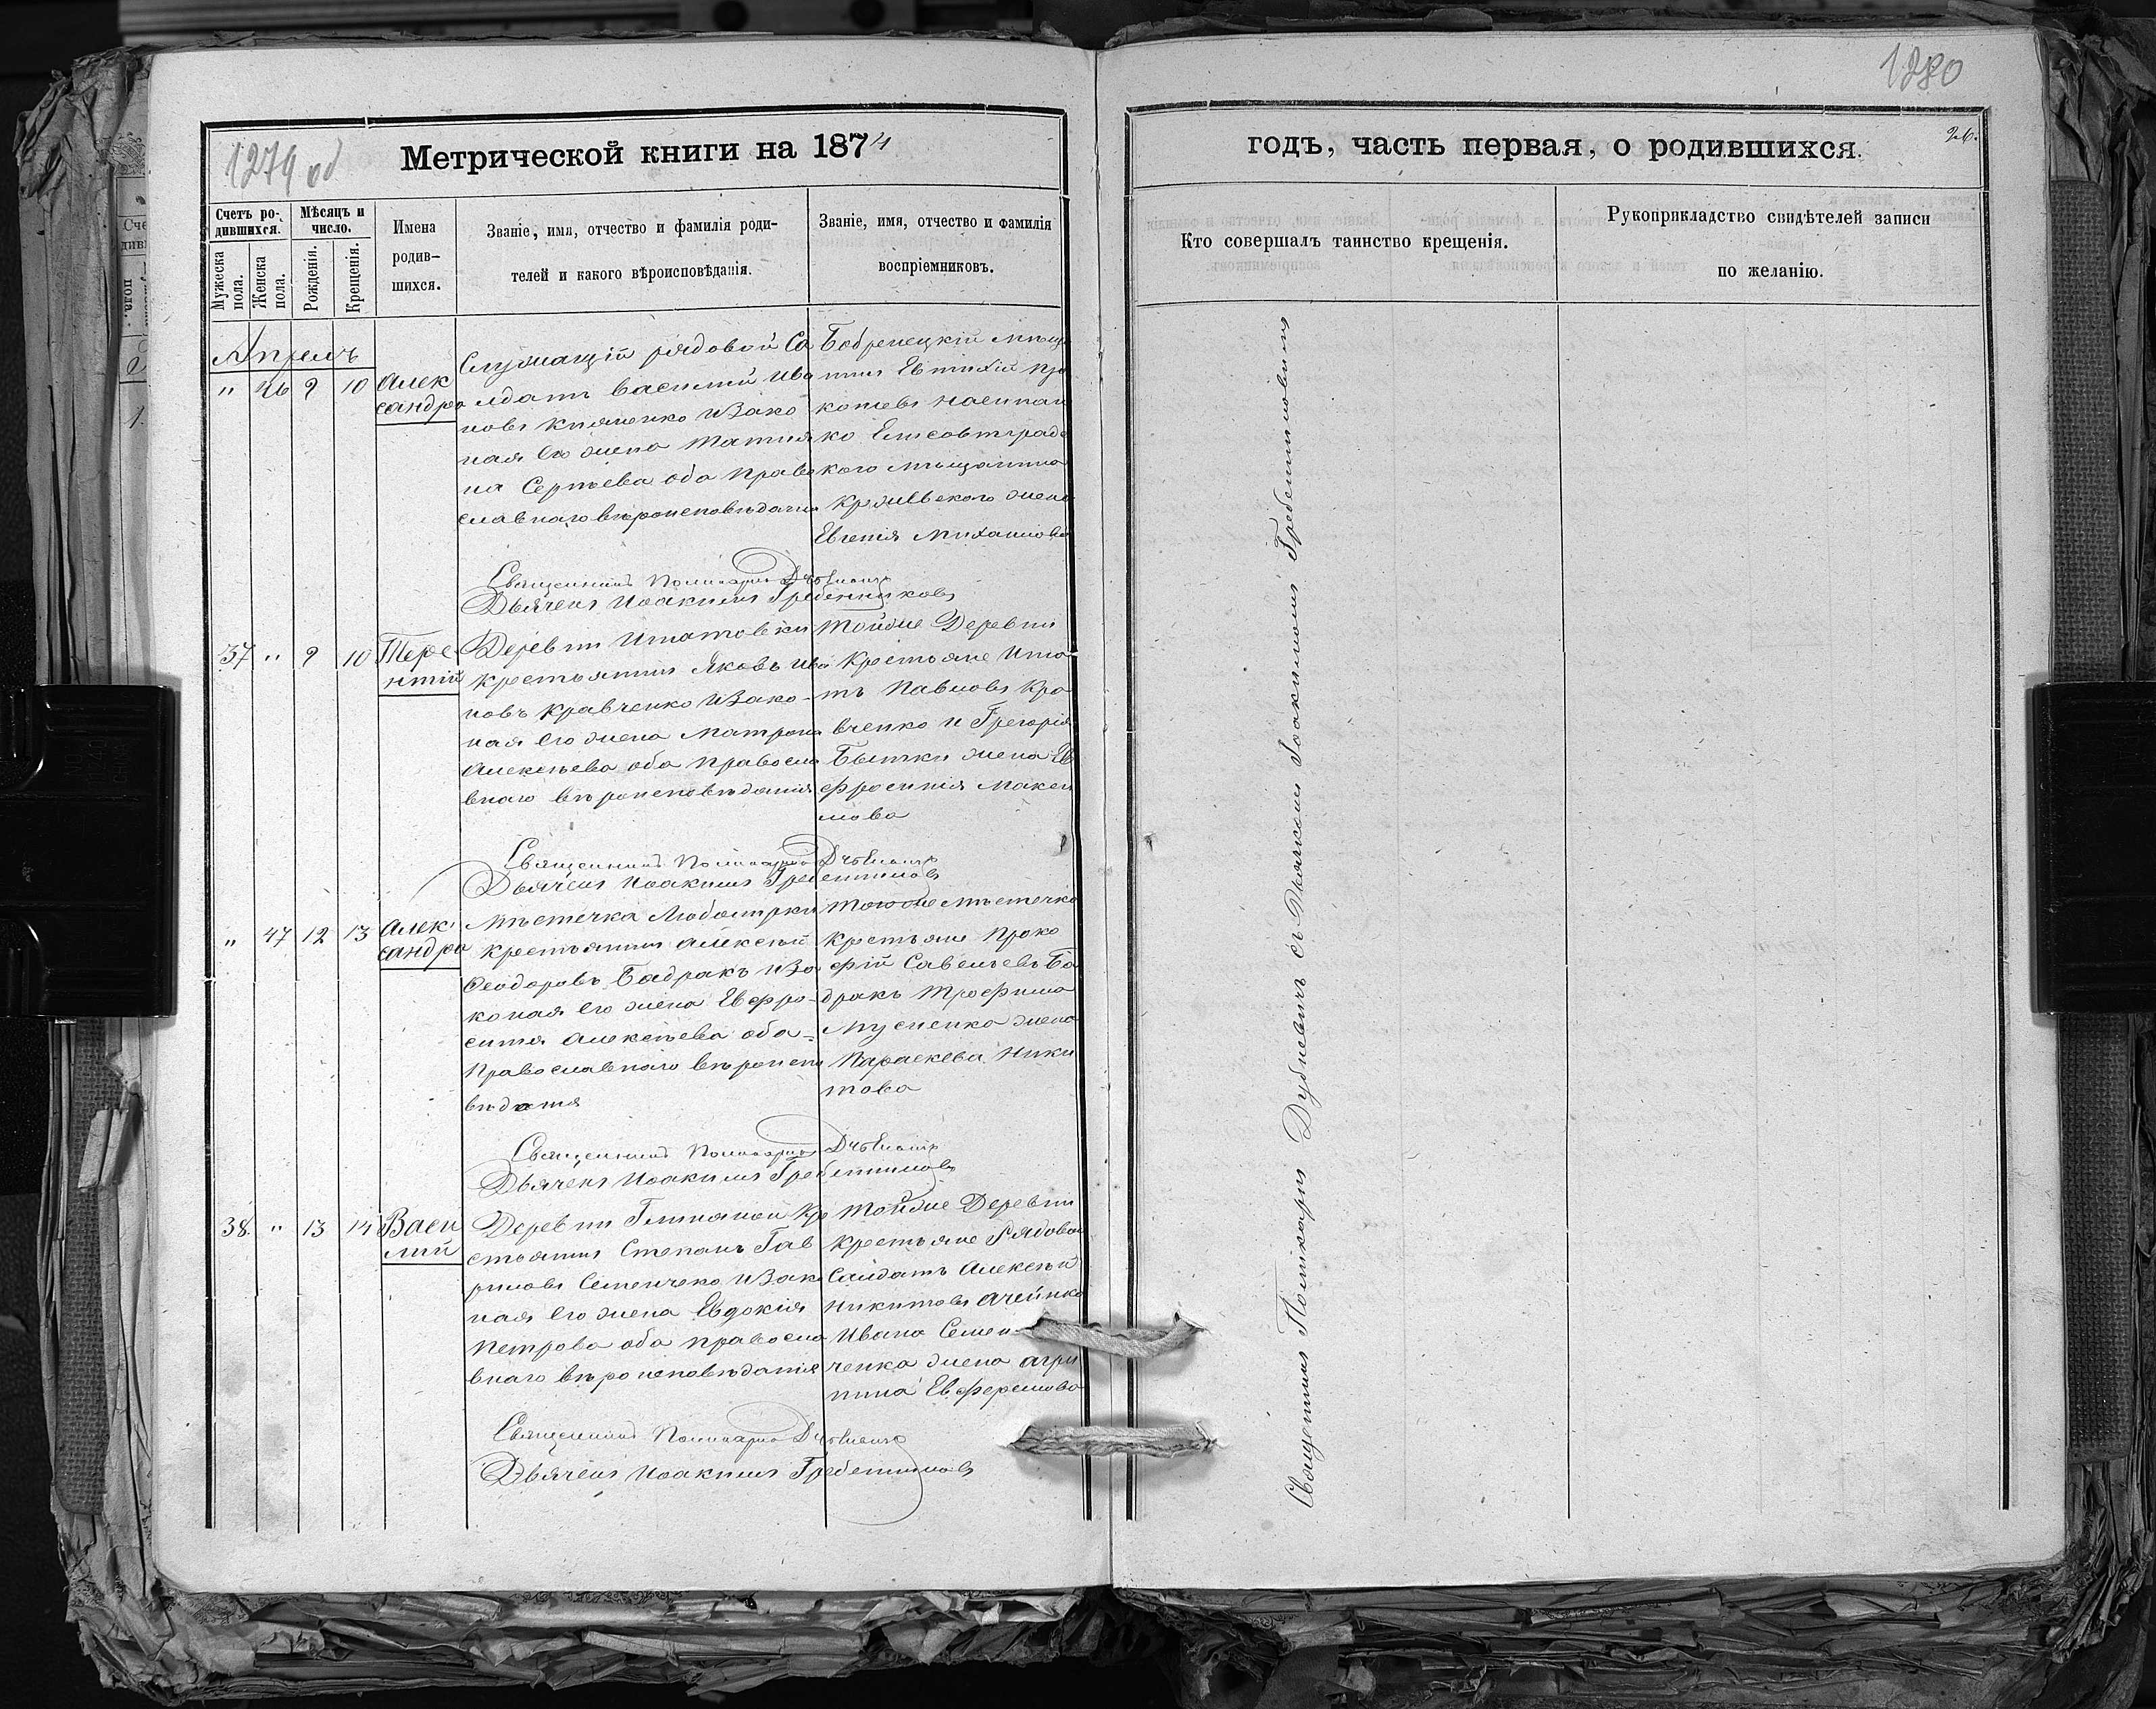 1279 об
Метрической книги на 1874
Счетъ ро-
дившихся.
Мѣсяцъ и
число.
Мужеска
пола.
Женска
пола.
Рожденія.
Крещенія.
Имена
родив-
шихся.
Званіе, имя, отчество и фамилія роди-
телей и какого вѣроисповѣданія.
Званіе, имя, отчество и фамилія
воспріемниковъ.
Апрель
" 46 9 10
Алек
сандра
Служащій рядовой Со
лдатъ Василій Ива
новъ Княженко и Зако
ная его жена Татия
на Сергѣева оба Право
славнаго вѣроисповѣданія
Бобренецкій Мѣща
нинъ Евтихій Про
ко Елисоветградс
кого мѣщанина
жена
Евгенія Михаилова
Священникъ Поликарпъ
Дьячекъ Иоакимъ Гребенниковъ
37 " 9 10
Тере
нтій
Деревни Игнатовки
крестьянинъ Яковъ Ива
новъ Кравченко и Зако-
ная его жена Матрона
Алексѣева оба Правосла
внаго вѣроисповѣданія
Тойже Деревни
Крестьяне Игна
тъ Павловъ Кра
вченко и Грегорія
жена Ев
фросинія Макси
мова
Священникъ Поликарпъ
Дьячекъ Иоакимъ Гребенниковъ
" 47 12 13
Алек
сандра
Мѣстечка Любомирки
Крестьянинъ Алексѣй
Феодоровъ Бадракъ и За
коная его жена Евфро-
синія Алексѣева оба-
Православнаго вѣроиспо
вѣданія
Тогоже мѣстечка
Крестьяне Проко
фій Савельевъ Ба
дракъ Трофима
Мусіенка жена
Параскева Ники
това
Священникъ Поликарпъ
Дьячекъ Иоакимъ Гребенниковъ
38. " 13 14
Васи
лий
Деревни Глиняной Кре
стьянинъ Степанъ Гав
риловъ Семенченко и Зако
ная его жена Евдокія
Петрова оба Правосла
внаго вѣроисповѣданія
Тойже Деревни
Крестьяне Рядовой
Салдатъ Алексѣй
Никитовъ
Ивана Семен-
ченка жена Агри
пина Ефремова
Священникъ Поликарпъ
Дьячекъ Иоакимъ Гребенниковъ
1280
годъ, часть первая, о родившихся.
26.
Кто совершалъ таинство крещенія.
Рукоприкладство свидѣтелей записи
по желанію.
Священникъ Поликарпъ Дубневичъ съ Дьячкомъ Іоакимомъ Гребенниковымъ